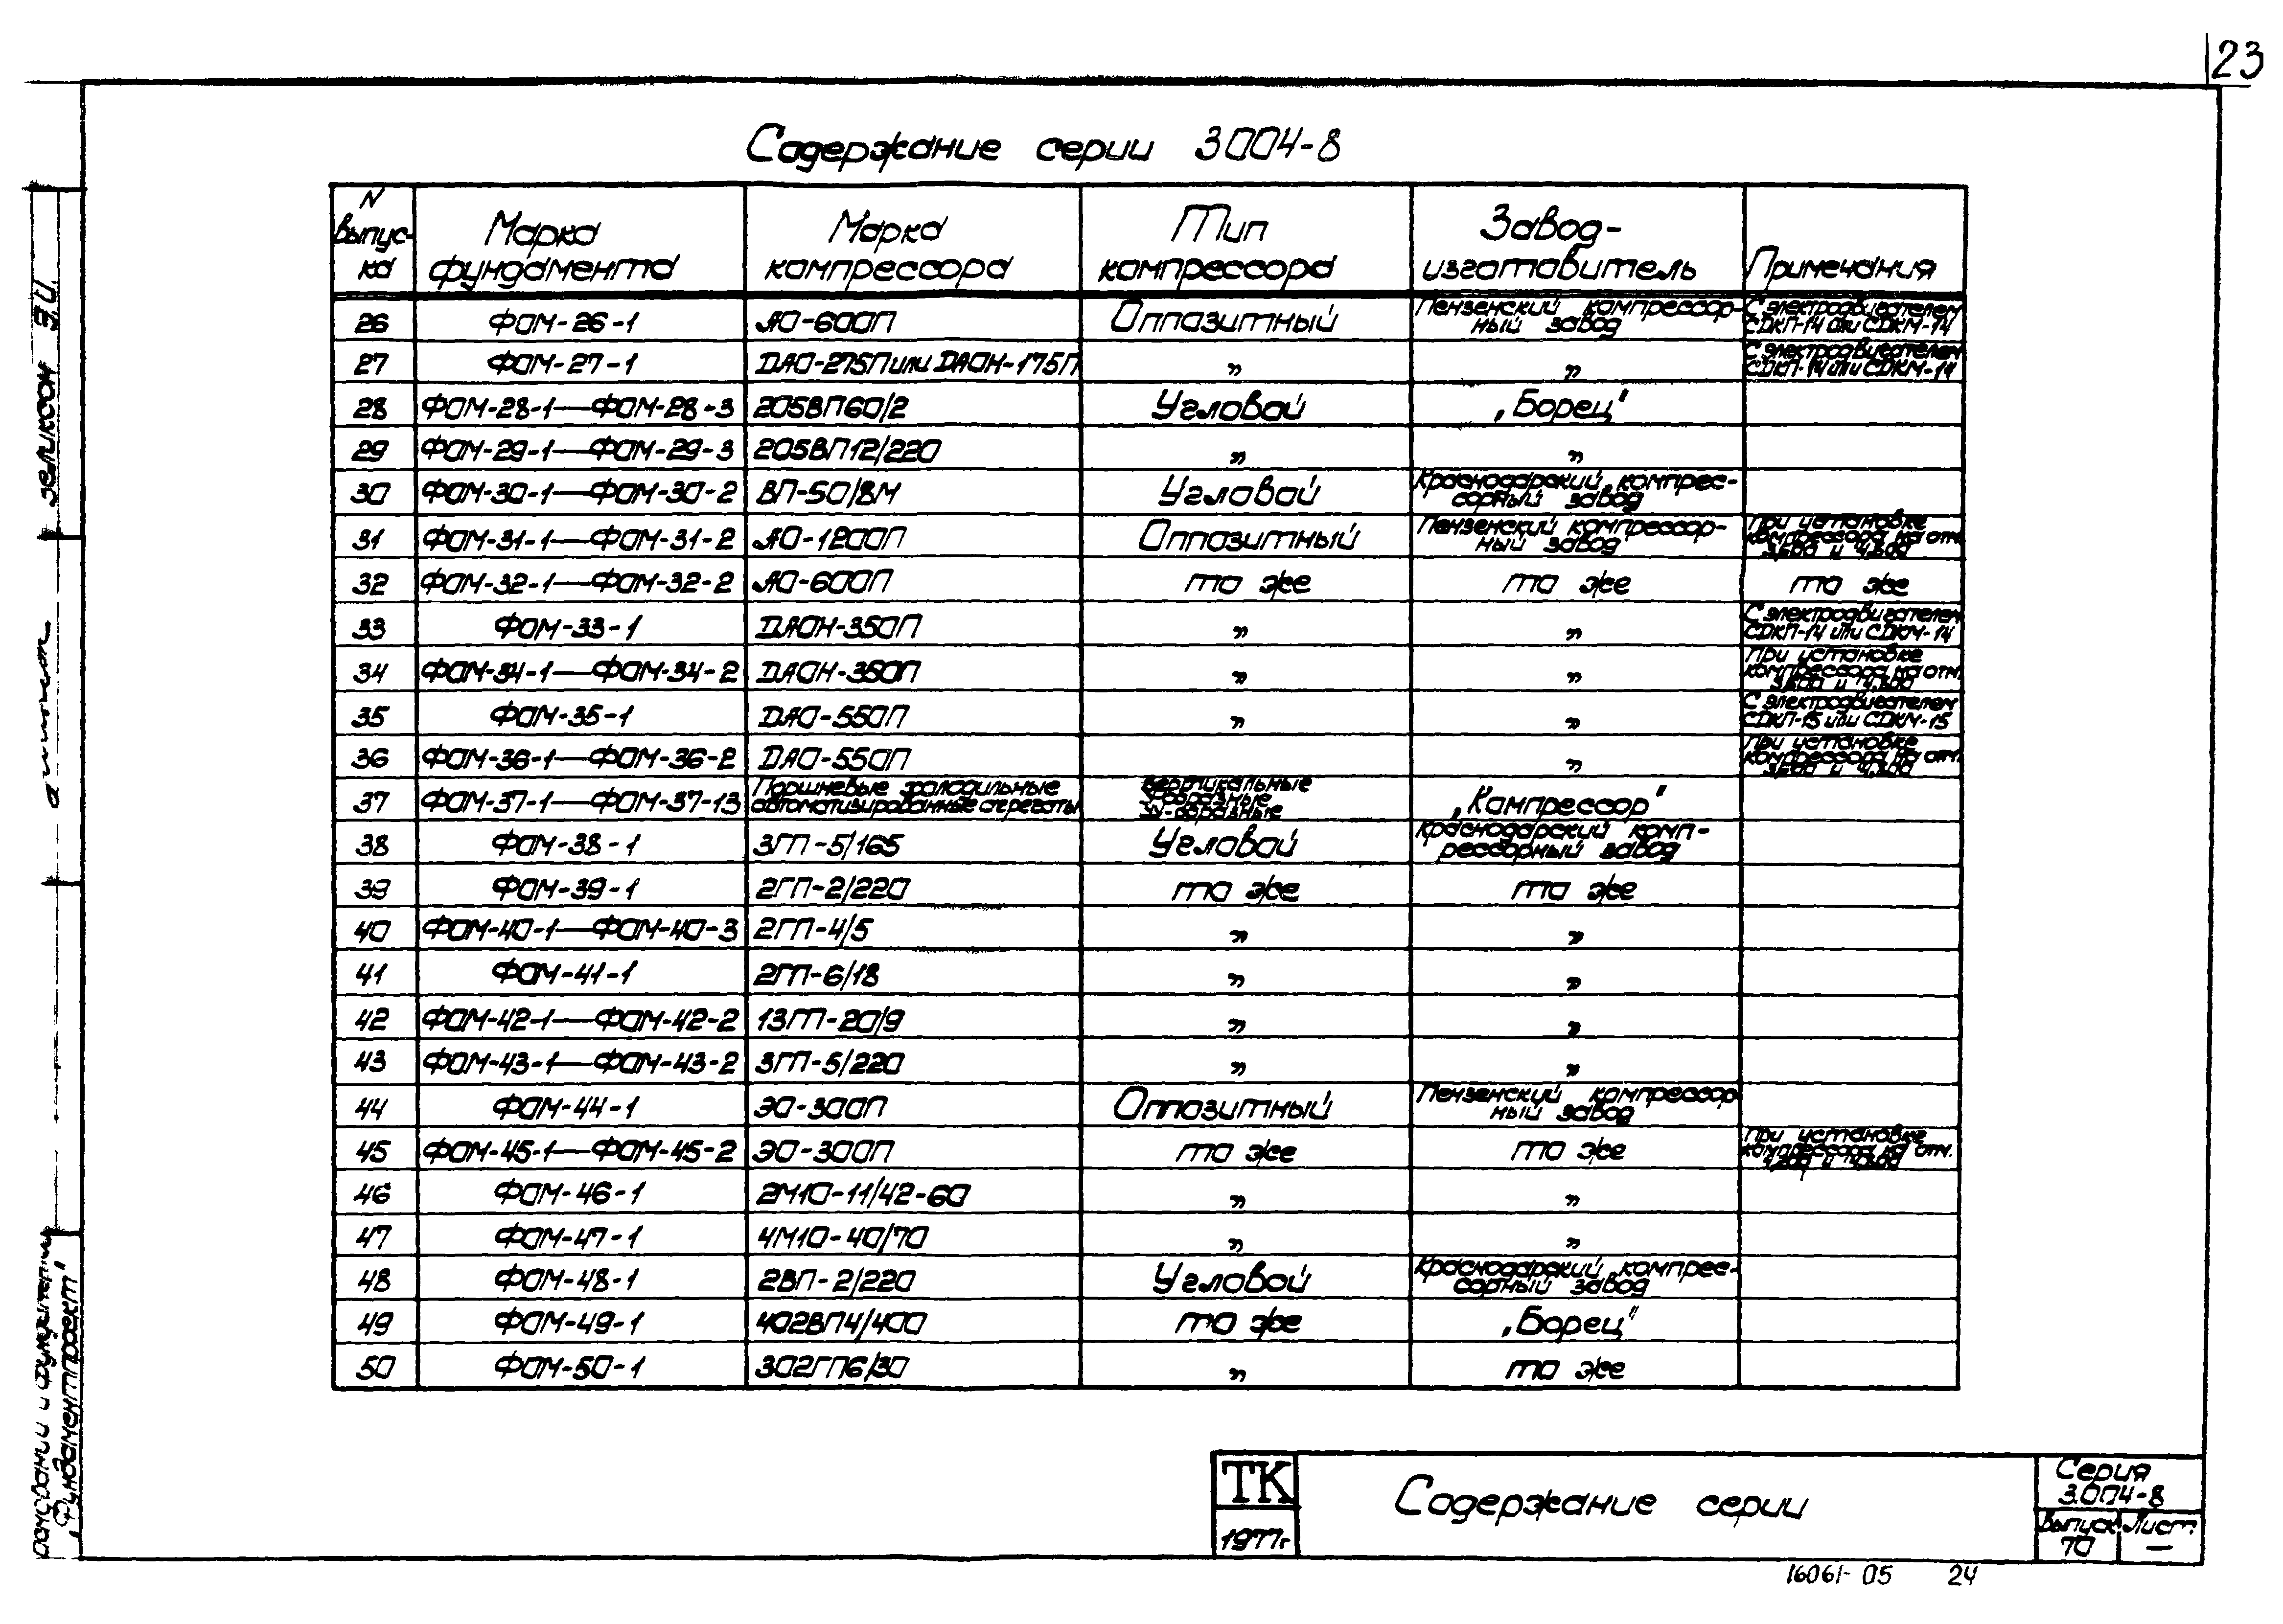 23
Содержание серии 3.004-8
N выпус-ка Марка фундамента Марка компрессора Тип компрессора Завод-изготовитель Примечания
26 ФОМ-26-1 АО-600П Оппозитный Пензенский компрессор-ный завод С электродвигателем СДКП-14 или СДКМ-14
27 ФОМ-27-1 ДАО-275П или ДАОН-175П „ „ С электродвигателем СДКП-14 или СДКМ-14
28 ФОМ-28-1—ФОМ-28-3 205ВП60/2 Угловой „Борец"
29 ФОМ-29-1—ФОМ-29-3 205ВП12/220 „ „
30 ФОМ-30-1—ФОМ-30-2 ВП-50/8М Угловой Краснодарский компрес-сорный завод
31 ФОМ-31-1—ФОМ-31-2 АО-1200П Оппозитный Пензенский компрессор-ный завод При установке компрессора на отм. 3,600 и 4,800
32 ФОМ-32-1—ФОМ-32-2 АО-600П то же то же то же
33 ФОМ-33-1 ДАОН-350П „ „ С электродвигателем СДКП-14 или СДКМ-14
34 ФОМ-34-1—ФОМ-34-2 ДАОН-350П „ „ При установке компрессора на отм. 3,600 и 4,800
35 ФОМ-35-1 ДАО-550П „ „ С электродвигателем СДКП-15 или СДКМ-15
36 ФОМ-36-1—ФОМ-36-2 ДАО-550П „ При установке компрессора на отм. 3,600 и 4,800
37 ФОМ-37-1—ФОМ-37-13 Поршневые холодильные автоматизированные агрегаты Вертикальные У-образные УУ-образные „Компрессор"
38 ФОМ-38-1 3ГП-5/165 Угловой Краснодарский комп-рессорный завод
39 ФОМ-39-1 2ГП-2/220 то же то же
40 ФОМ-40-1—ФОМ-40-3 2ГП-4/5 „ „
41 ФОМ-41-1 2ГП-6/18 „ „
42 ФОМ-42-1—ФОМ-42-2 13ГП-20/9 „ „
43 ФОМ-43-1—ФОМ-43-2 3ГП-5/220 „ „
44 ФОМ-44-1 ЭО-300П Оппозитный Пензенский компрессор ный завод
45 ФОМ-45-1—ФОМ-45-2 ЭО-300П то же то же При установке компрессора на отм.
46 ФОМ-46-1 2М10-11/42-60 „ „
47 ФОМ-47-1 4М10-40/70 „ „
48 ФОМ-48-1 2ВП-2/220 Угловой Краснодарский компрес-сорный завод
49 ФОМ-49-1 402ВП4/400 то же „Борец"
50 ФОМ-50-1 302ГП6/30 „ то же
ТК
1977г
Содержание серии
Серия
3.004-8
Выпуск Лист
70 —
16061-05 24
Зеликсон Э.И.
„Фундаментпроект"